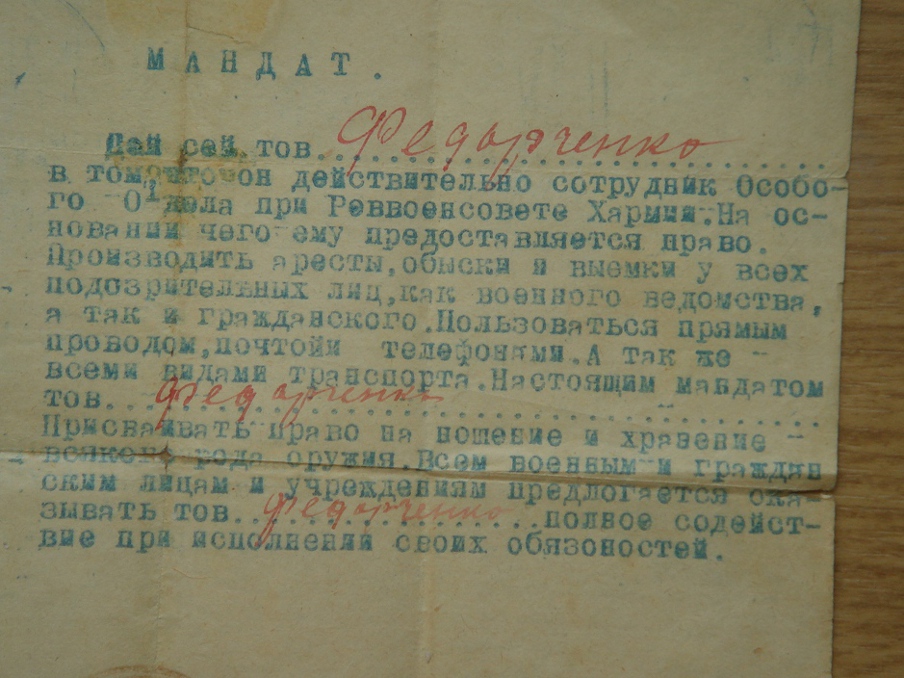 МАНДАТ.
Дан сей тов. Федорченко
в том что он действительно сотрудник Особо-
го Отдела при Реввоенсовете Хармии. На ос-
новании чего ему предоставляется право.
Производить аресты, обыски и выемки у всех
подозрительных лиц, как военного ведомства,
а так и гражданского. Пользоваться прямым
проводом, почтойи телефонами. А так же -
всеми видами транспорта. Настоящим мандатом
тов. Федорченко
Присваивать право на ношение и хранение -
всякого рода оружия. Всем военным и граждан
ским лицам и учреждениям предлогается ока
зывать тов. Федорченко полное содейст-
вие при исполнении своих обязоностей.